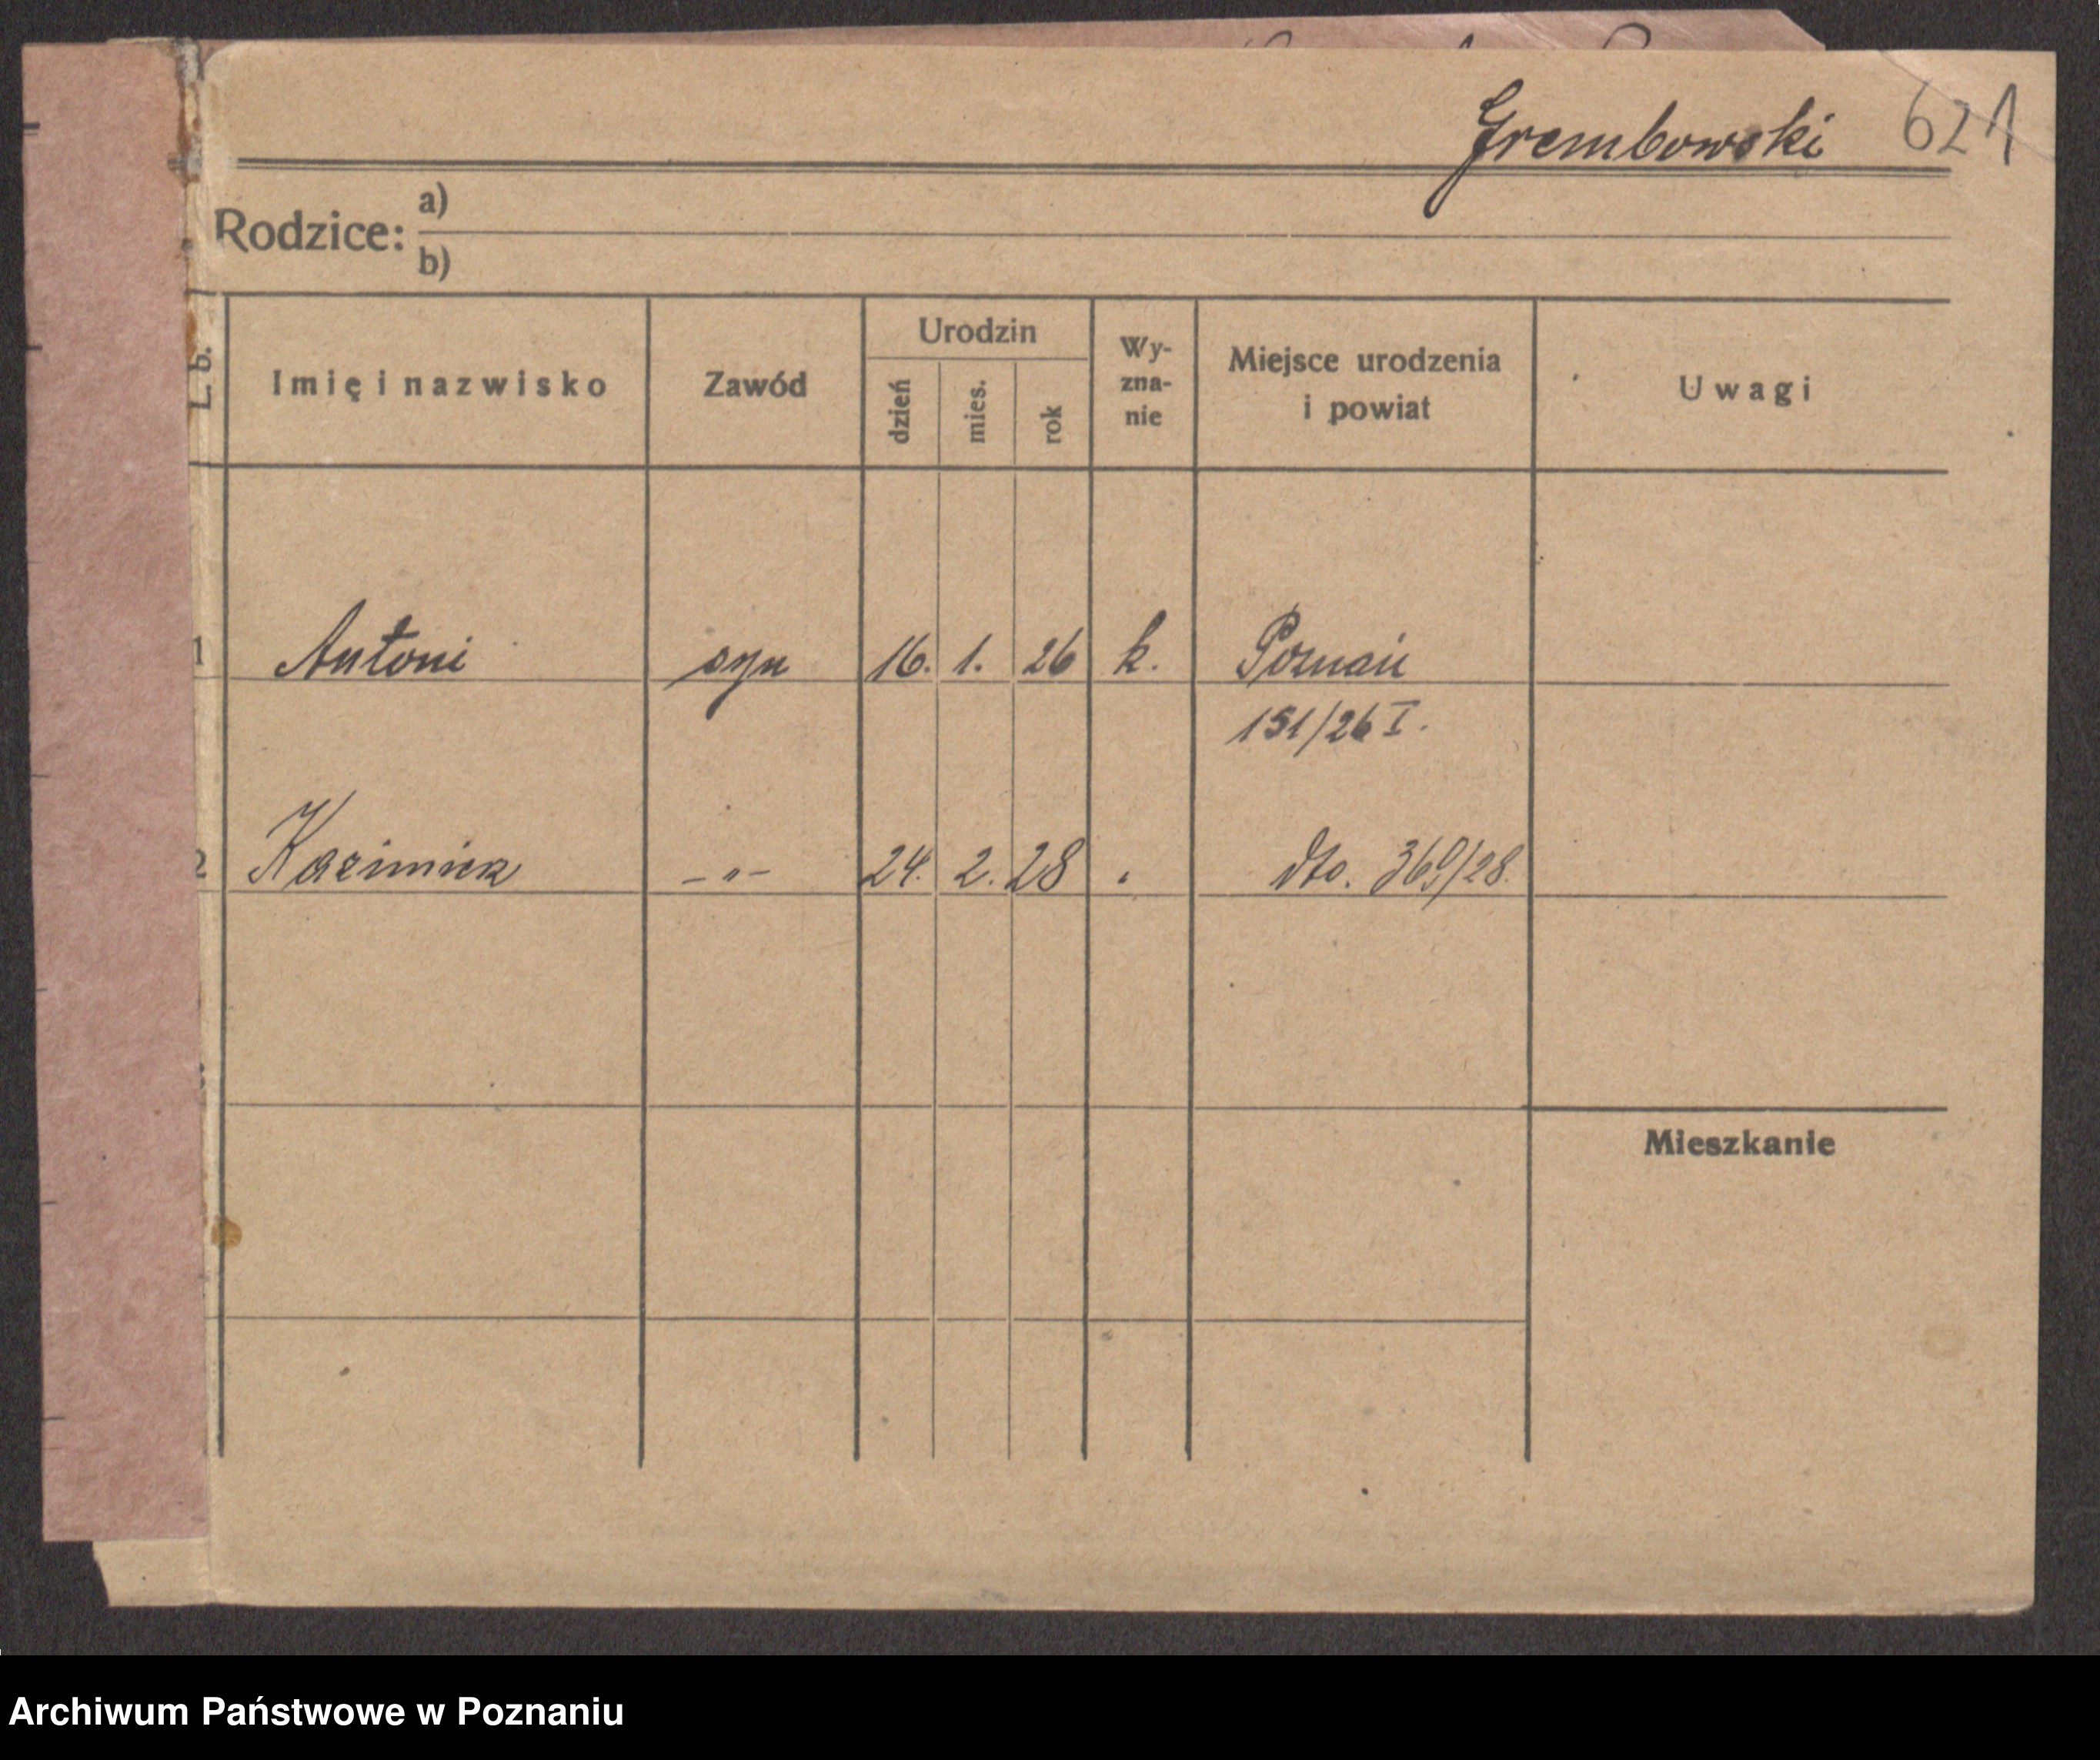 Grembowski 621
Rodzice: a)
b)
L. b.
Imię i nazwisko
Zawód
Urodzin
dzień
mies.
rok
Wy-
zna-
nie
Miejsce urodzenia
i powiat
Uwagi
1 Antoni syn 16. 1. 26 k. Poznań
151/26 I.
2 Kazimierz – " – 24. 2. 28 " dto. 369/28.
Mieszkanie
Archiwum Państwowe w Poznaniu